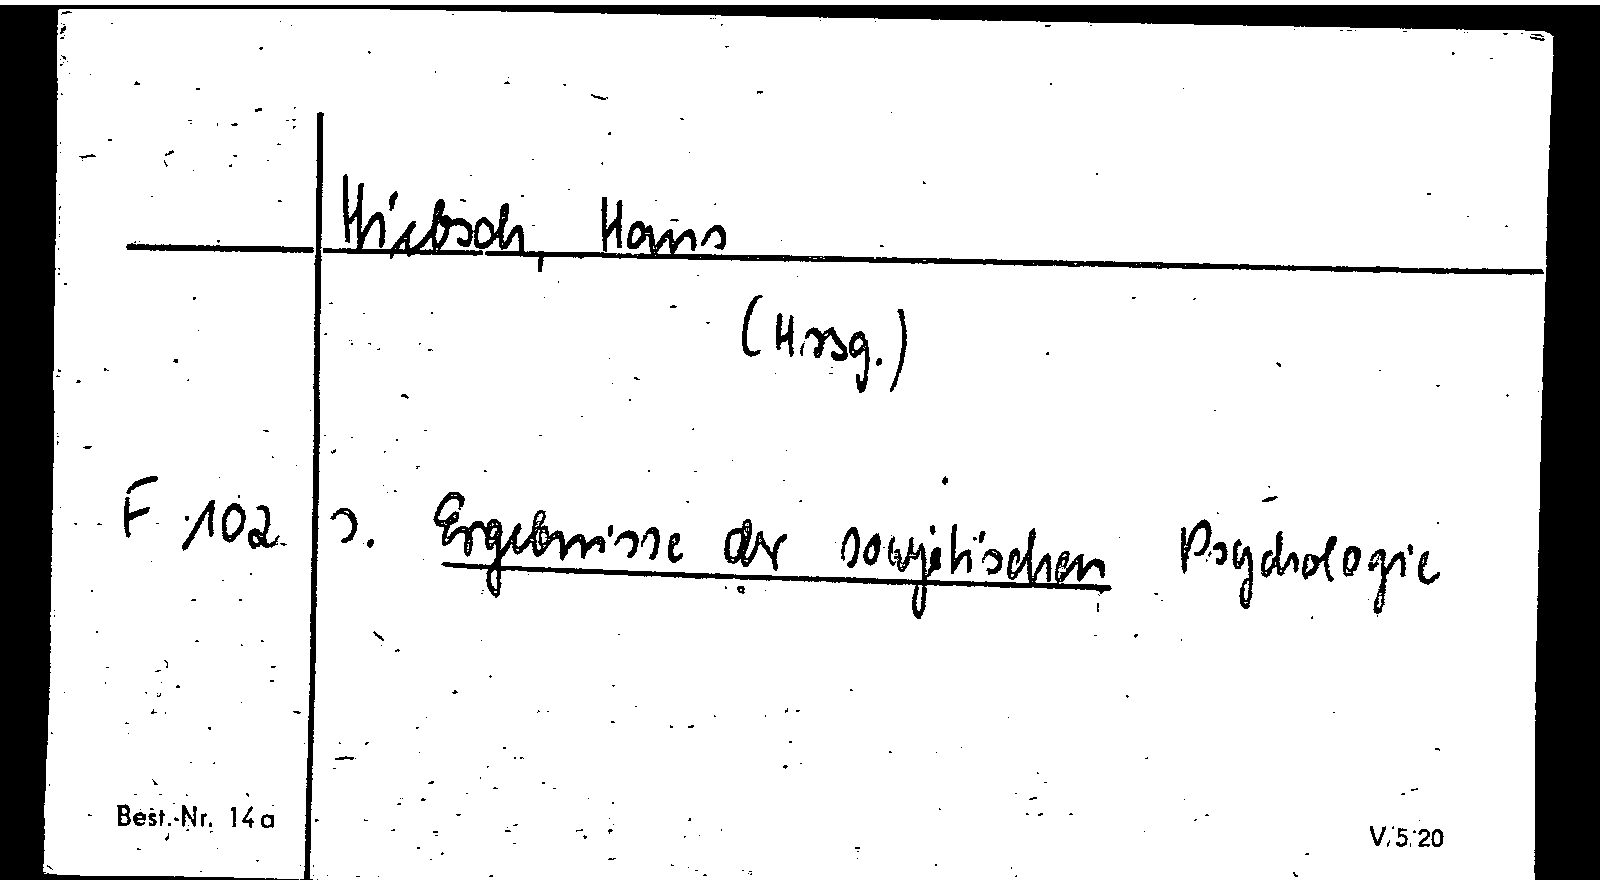 Hiebsch, Hans
(Hrsg.)
F 102 s. Ergebnisse der sowjetischen Psychologie
Best.-Nr. 14a
V.5.20